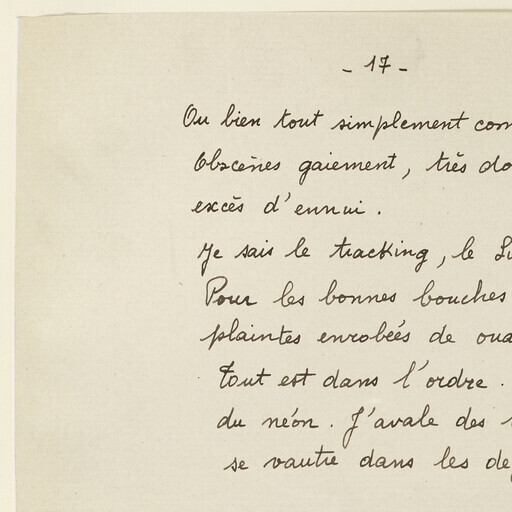 - 17 -
Ou bien tout simplement com
Obscènes gaiement, très do
excès d'ennui.
Je sais le tracking, le Su
Pour les bonnes bouches
plaintes enrobées de oua
Tout est dans l'ordre.
du néon. J'avale des
se vautre dans les de